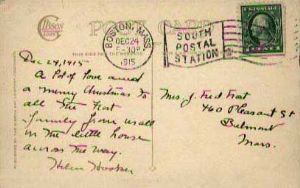 POST CARD
BOSTON, MASS.
DEC 24
1915
SOUTH
POSTAL
STATION
Dec 24, 1915
A Pot of Love and
a merry Christmas to
all The Trat
family from us all
in the little house
across the way.
Helen Hooker
Mrs. J. Fred Trat
460 Pleasant St
Belmont
Mass.